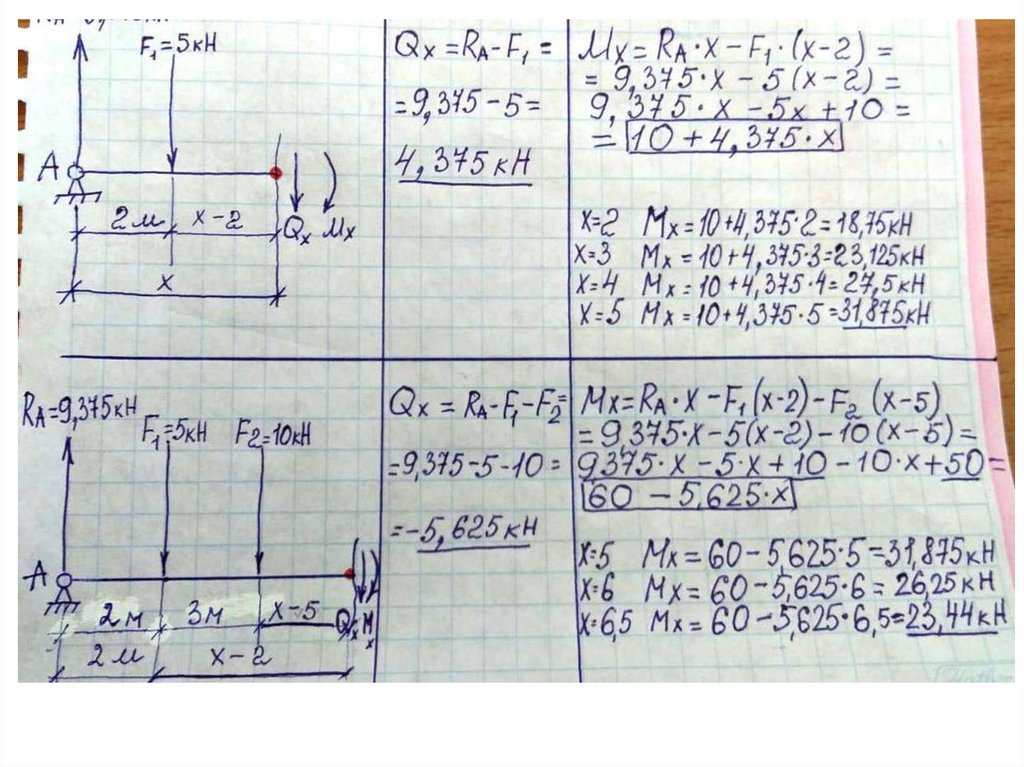 F₁=5кН
A
2м x-2 Qx Mx
x
Qx = RA-F₁ =
=9,375-5=
4,375кН
Mx = RA·x-F₁·(x-2) =
= 9,375·x - 5(x-2) =
9,375·x -5x+10 =
= 10 + 4,375·x
x=2 Mx = 10+4,375·2=18,75кН
x=3 Mx = 10+4,375·3=23,125кН
x=4 Mx = 10+4,375·4=27,5кН
x=5 Mx = 10+4,375·5=31,875кН
RA=9,375кН
F₁=5кН F2=10кН
A
2м 3м x-5 Qx Mx
2м x-2
Qx = RA-F₁-F₂=
=9,375-5-10 =
=-5,625кН
Mx=RA·x-F₁(x-2)-F₂(x-5)
= 9,375·x-5(x-2)-10(x-5)=
9375·x-5·x+10-10·x+50=
60 - 5,625·x
x=5 Mx = 60-5,625·5=31,875кН
x=6 Mx = 60-5,625·6=26,25кН
x=6,5 Mx = 60-5,625·6,5=23,44кН